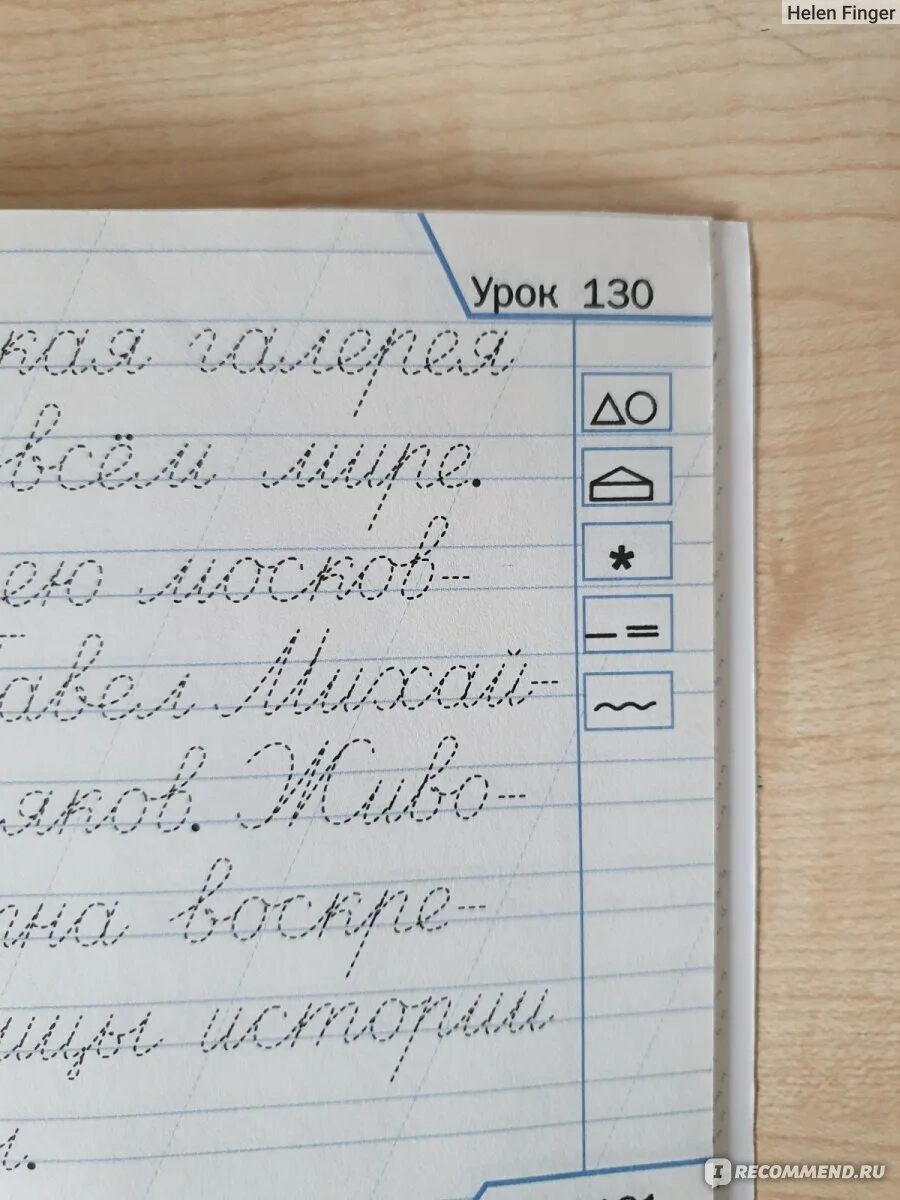 Helen Finger
Урок 130
кая галерея
всём мире.
ею москов-
авел Михай-
яков. Живо-
ана воскре-
ицы истории
RECOMMEND.RU